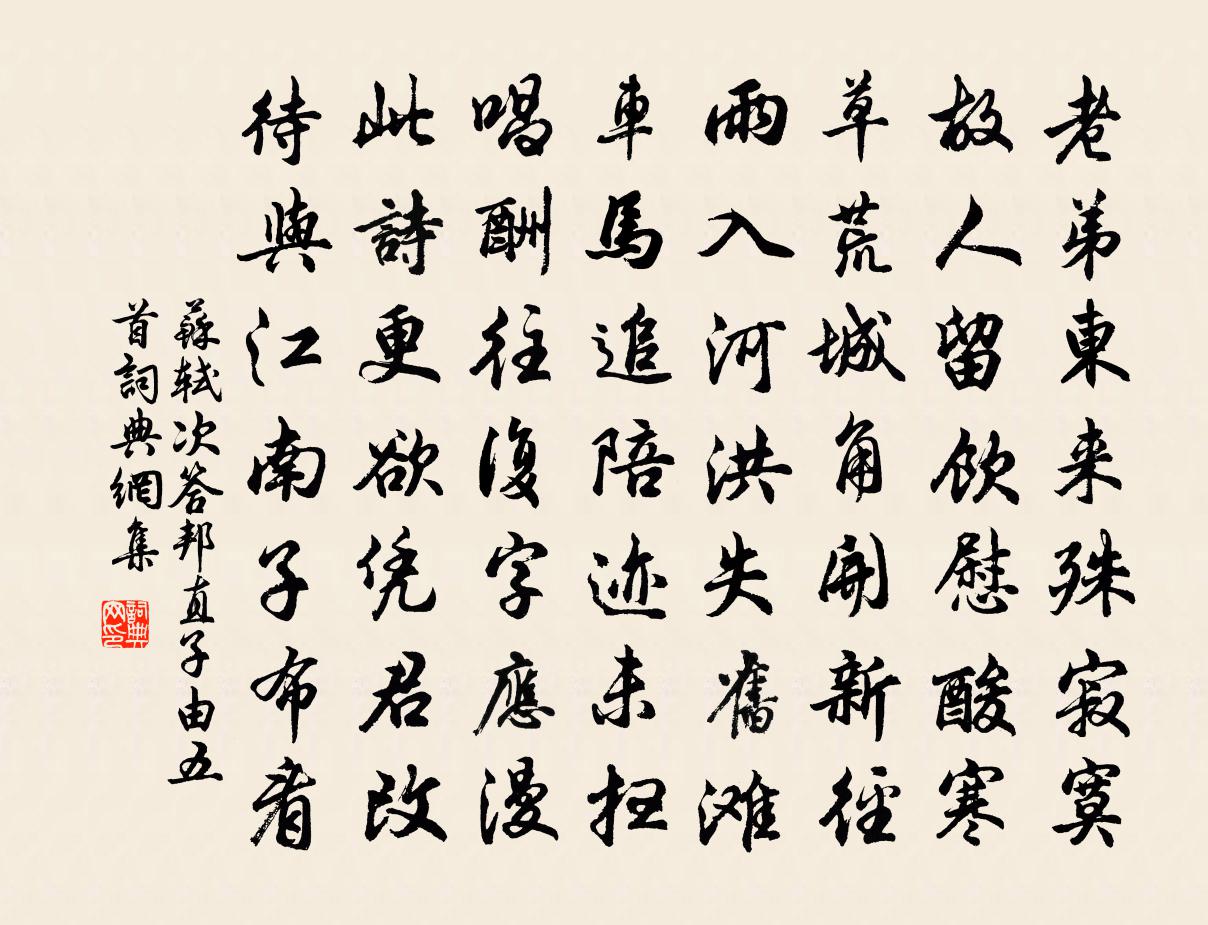 老弟東来殊寂寞
故人留飲慰酸寒
草荒城角開新徑
雨入河洪失舊滩
車馬追陪迹未扫
唱酬往復字應漫
此詩更欲凭君改
待與江南子布看
蘇軾次答邦直子由五
首詞典網集
詞典
网印